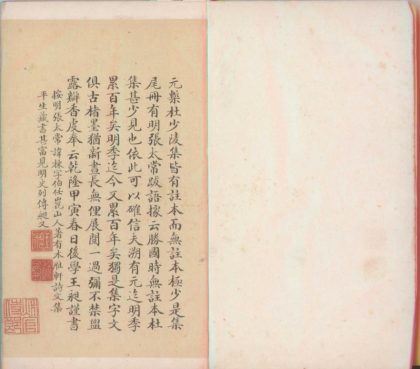 元槧杜少陵集皆有註本而無註本極少是集
尾冊有明張太常跋語據云勝國時無註本杜
集甚少見也依此可以確信夫溯有元迄明季
累百年矣明季迄今又累百年矣獨是集字文
俱古楮墨猶新晝長無俚展閱一過彌不禁盥
露瓣香虔奉云乾隆甲寅春日後學王昶謹書
按明張太常諱棟字伯任崑山人著有木雁軒詩文集
平生藏書甚富見明史列傳昶又